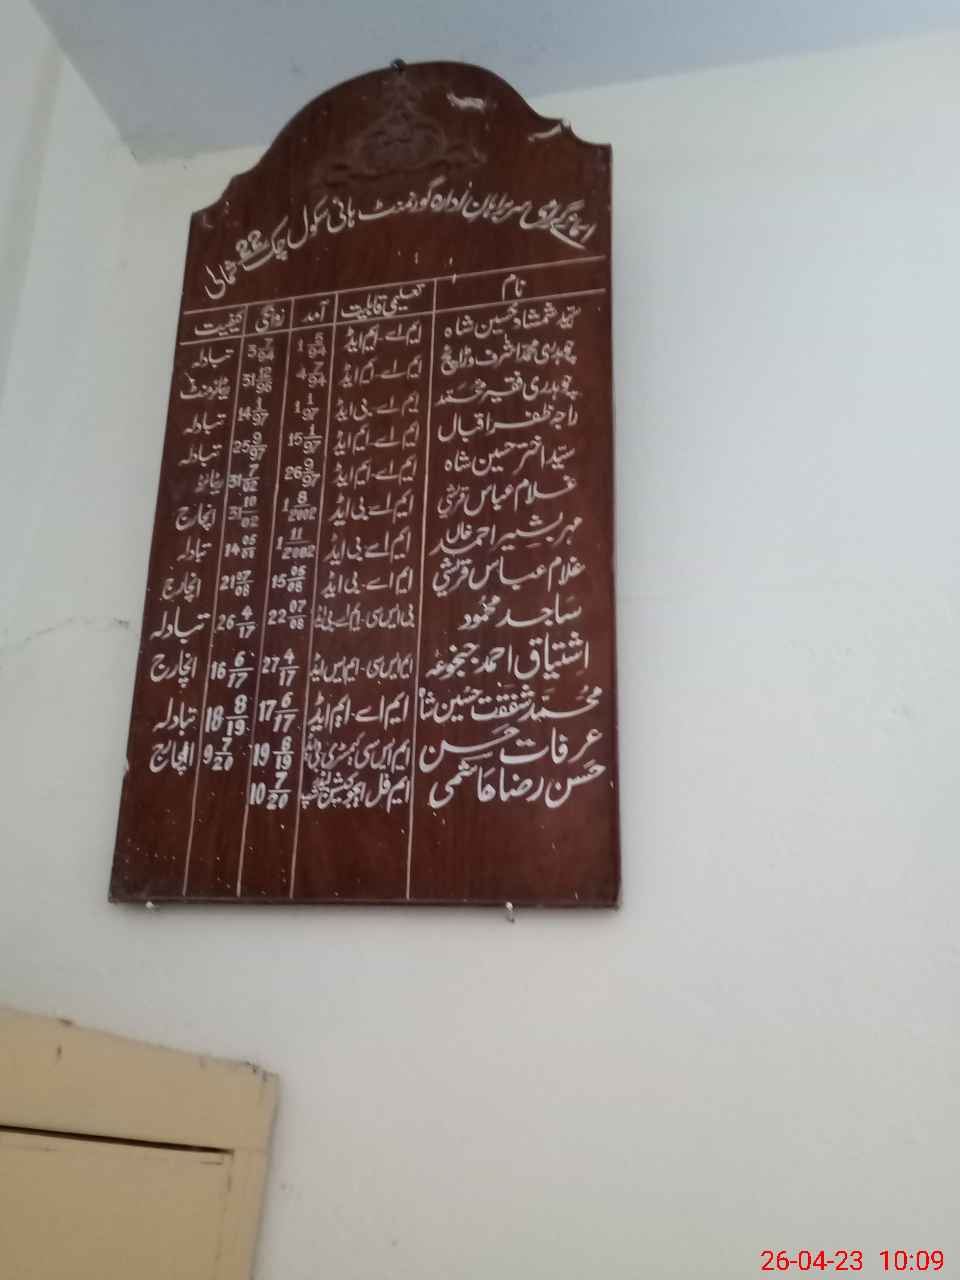 اسمائے گرامی سربراہان ادارہ گورنمنٹ ہائی سکول چک 22 شمالی
نام تعلیمی قابلیت آمد روانگی کیفیت
سیّد شمشاد حسین شاہ ایم اے ۔ ایم ایڈ 1 5/94 3 7/94 تبادلہ
چوہدری محمد اشرف وڑائچ ایم اے ۔ ایم ایڈ 4 7/94 31 12/96 ریٹائرمنٹ
چوہدری فقیر محمّد ایم اے ۔ بی ایڈ 1 1/97 14 1/97 تبادلہ
راجہ ظفر اقبال ایم اے ۔ ایم ایڈ 15 1/97 25 9/97 تبادلہ
سیّد اختر حسین شاہ ایم اے ۔ ایم ایڈ 26 9/97 31 7/02 ریٹائرڈ
غلام عباس قریشی ایم اے بی ایڈ 1 8/2002 31 10/02 انچارج
مہر بشیر احمد خاں ایم اے بی ایڈ 1 11/2002 14 05/08 تبادلہ
غلام عباس قریشی ایم اے ۔ بی ایڈ 15 05/08 21 07/08 انچارج
ساجد محمُود بی ایس سی ۔ ایم اے ۔ بی ایڈ 22 07/08 26 4/17 تبادلہ
اشتیاق احمد جنجوعہ ایم ایس سی ۔ ایم ایس ایڈ 27 4/17 16 6/17 انچارج
محمّد شفقت حُسین شاہ ایم اے ۔ ایم ایڈ 17 6/17 18 8/19 تبادلہ
عرفات حسن ایم ایس سی کیمسٹری بی ایڈ 19 8/19 9 7/20 انچارج
حسن رضا ہاشمی ایم فل ایجوکیشن لیڈرشپ 10 7/20
26-04-23 10:09